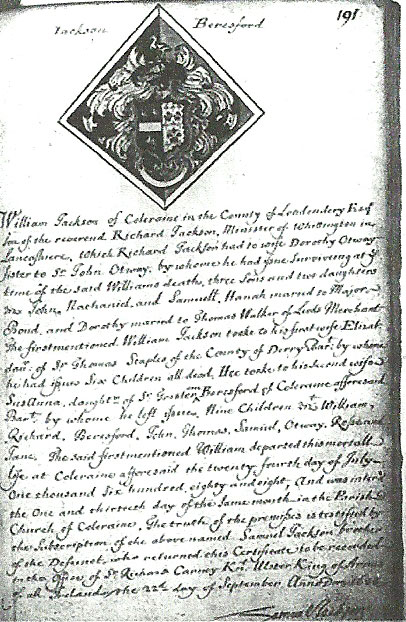 191
Jackson Beresford
William Jackson of Coleraine in the County of Londondery Esqr
Son of the reverend Richard Jackson, Minister of Whittington in
Lancashire, Which Richard Jackson had to wife Dorothy Otway
Sister to Sr. John Otway, by whome he had issue Surviving at ye
time of the said Williams death, three Sons and two daughters
John, Nathaniel, and Samuell, Hanah maried to Major
Bond, and Dorothy maried to Thomas Walker of Leeds Merchant
The firstmentioned William Jackson tooke to his first wife Elizab.
daur. of Sr Thomas Staples of the County of Derry Bart. by whome
he had issues Six Children all dead, Hee tooke to his second wife
Susanna, daughtr. of Sr. Beresford of Coleraine afforesaid
Bart. by whome he left issues, Nine Children William,
Richard, Beresford, John, Thomas, Samuel, Otway, and
Jane. The said firstmentioned William departed this mortall
life at Coleraine aforesaid the twenty fourth day of July
One thousand Six hundred, eighty and eight, And was interr
the One and thirteth day of the same month in the Parish
Church of Coleraine, The truth of the premises is testified by
the Subscription of the above named Samuel Jackson brother
of the Defunct, who returned this Certificate to be recorded
in the Office of Sr Richard Carney Knt. Ulster King of Armes
of all Ireland, the 22d day of September Anno Dom.
Samuel Jackson